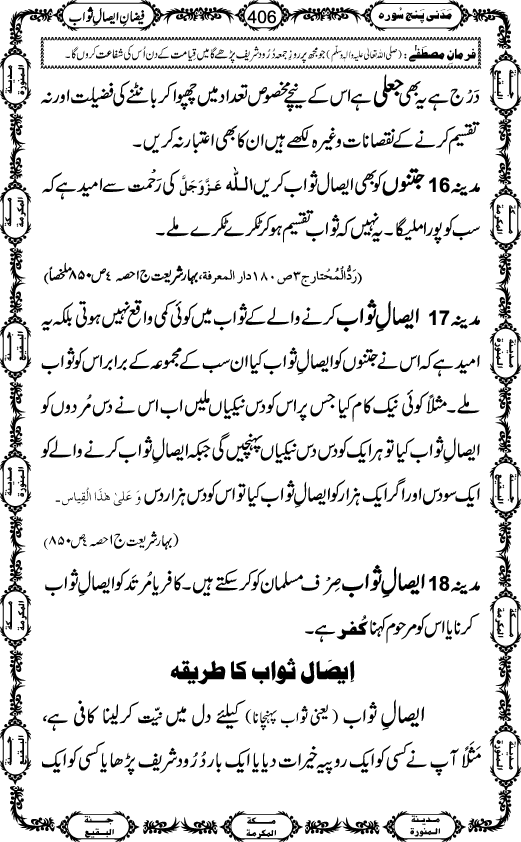 مَدَنی پَنج سُورہ
406
فیضانِ ایصالِ ثواب
فرمانِ مصطفٰے : (صلی اللہ تعالیٰ علیہ واٰلہٖ وسلّم) جو مجھ پر روزِ جمعہ دُرُود شریف پڑھے گا میں قیامت کے دن اُس کی شفاعت کروں گا۔
دَرْج ہے یہ بھی جعلی ہے اس کے نیچے مخصوص تعداد میں چھپوا کر بانٹنے کی فضیلت اور نہ
تقسیم کرنے کے نقصانات وغیرہ لکھے ہیں ان کا بھی اعتبار نہ کریں۔
مدینہ 16 جتنوں کو بھی ایصال ثواب کریں اللہ عَزَّوَجَلَّ کی رَحْمت سے امید ہے کہ
سب کو پورا ملیگا۔ یہ نہیں کہ ثواب تقسیم ہو کر ٹکڑے ٹکڑے ملے۔
(رَدُّالْمُحتار ج۳ ص ۱۸۰ دار المعرفة، بہار شریعت ج۱ حصہ ۴ ص ۸۵۰ ملخصاً)
مدینہ 17 ایصالِ ثواب کرنے والے کے ثواب میں کوئی کمی واقع نہیں ہوتی بلکہ یہ
امید ہے کہ اس نے جتنوں کو ایصالِ ثواب کیا ان سب کے مجموعہ کے برابر اس کو ثواب
ملے۔ مثلاً کوئی نیک کام کیا جس پر اس کو دس نیکیاں ملیں اب اس نے دس مُردوں کو
ایصالِ ثواب کیا تو ہر ایک کو دس دس نیکیاں پہنچیں گی جبکہ ایصالِ ثواب کرنے والے کو
ایک سو دس اور اگر ایک ہزار کو ایصال ثواب کیا تو اس کو دس ہزار دس وَ عَلیٰ ھٰذَا الْقِیاس۔
(بہار شریعت ج۱ حصہ ۴ ص ۸۵۰)
مدینہ 18 ایصالِ ثواب صِرْف مسلمان کو کر سکتے ہیں۔ کافر یا مُرتَد کو ایصالِ ثواب
کرنا یا اس کو مرحوم کہنا کُفر ہے۔
اِیصَال ثواب کا طریقہ
ایصالِ ثواب (یعنی ثواب پہنچانا) کیلئے دل میں نیّت کر لینا کافی ہے،
مَثَلاً آپ نے کسی کو ایک روپیہ خیرات دیا یا ایک بار دُرُود شریف پڑھا یا کسی کو ایک
مدینة المنورة
مکة المکرمة
جنة البقیع